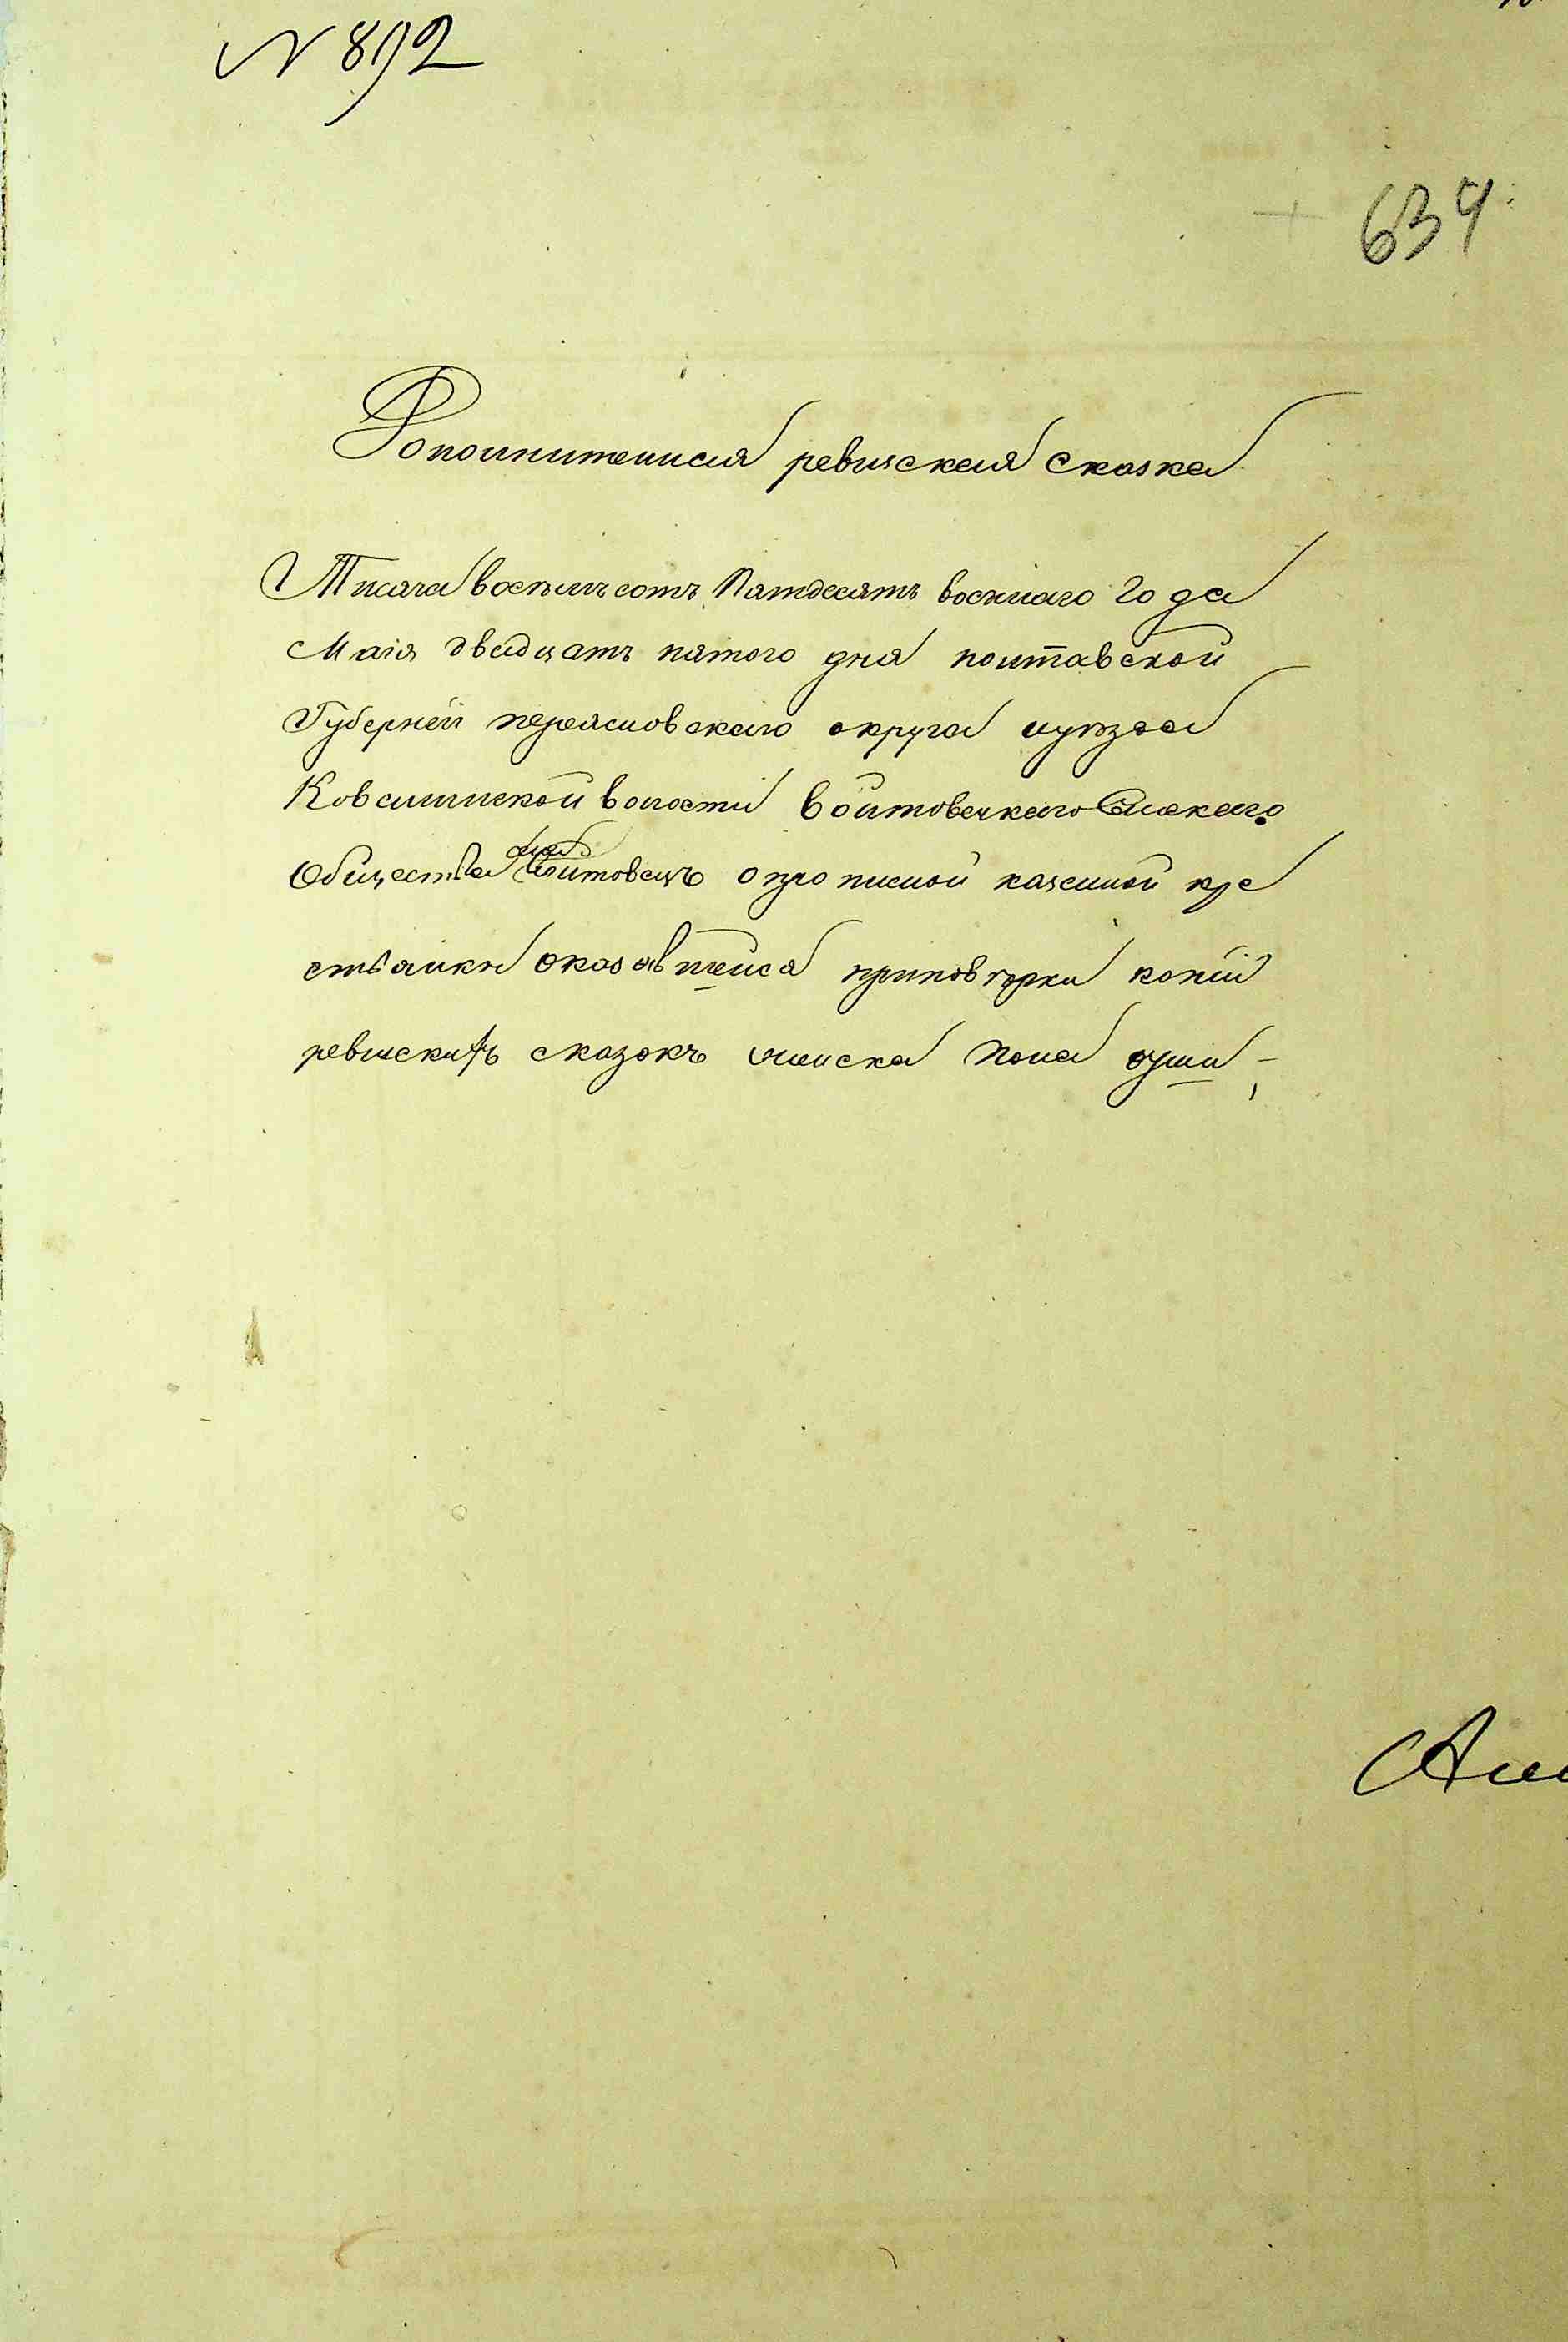 N 892
634
Дополнительная ревизская сказка
Тисяча восемьсотъ Пятдесятъ восмаго года
Маія двадцать пятого дня полтавской
Губерніи переясловскаго округа иуѣзда
Ковалинской волости войтовецкаго Сельскаго
Общества села Войтовець о прописной казенной кре
стьянки оказавшейся приповѣрки копій
ревискихъ сказокъ женска пола души